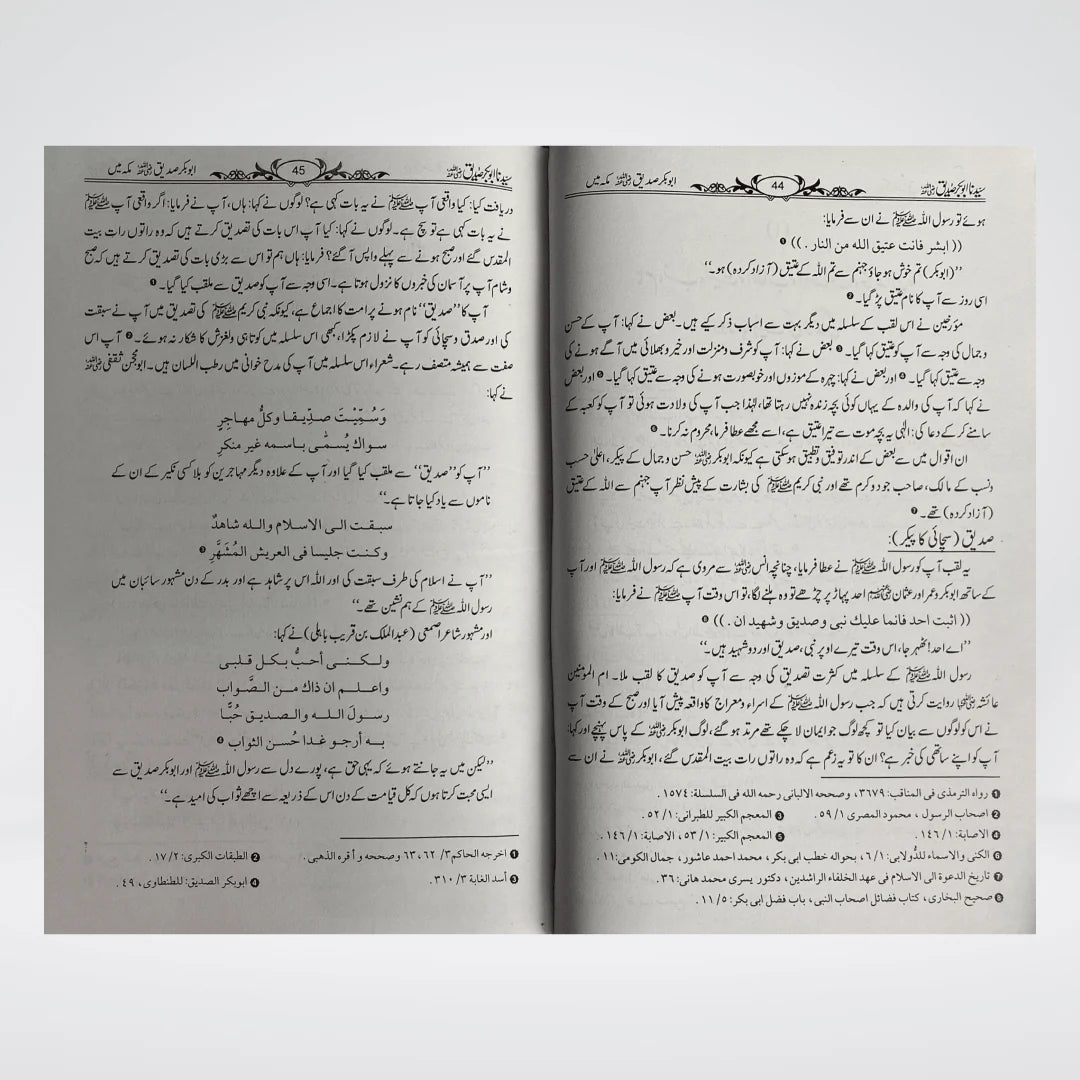 سیدنا ابوبکر صدیق رضی اللہ عنہ 44 ابوبکر صدیق رضی اللہ عنہ مکہ میں
ہوئے تو رسول اللہ ﷺ نے ان سے فرمایا:
(( ابشر فانت عتیق الله من النار . )) ❶
’’(ابوبکر) تم خوش ہو جاؤ جہنم سے تم اللہ کے عتیق (آزاد کردہ) ہو۔‘‘
اسی روز سے آپ کا نام عتیق پڑ گیا۔ ❷
مؤرخین نے اس لقب کے سلسلہ میں دیگر بہت سے اسباب ذکر کیے ہیں۔ بعض نے کہا: آپ کے حسن
و جمال کی وجہ سے آپ کو عتیق کہا گیا۔ ❸ بعض نے کہا: آپ کو شرف ومنزلت اور خیر و بھلائی میں آگے ہونے کی
وجہ سے عتیق کہا گیا۔ ❹ اور بعض نے کہا: چہرہ کے موزوں اور خوبصورت ہونے کی وجہ سے عتیق کہا گیا۔ ❺ اور بعض
نے کہا کہ آپ کی والدہ کے یہاں کوئی بچہ زندہ نہیں رہتا تھا، لہٰذا جب آپ کی ولادت ہوئی تو آپ کو کعبہ کے
سامنے کر کے دعا کی: الٰہی یہ بچہ موت سے تیرا عتیق ہے، اسے مجھے عطا فرما، محروم نہ کرنا۔ ❻
ان اقوال میں سے بعض کے اندر توفیق و تطبیق ہو سکتی ہے کیونکہ ابوبکر رضی اللہ عنہ حسن و جمال کے پیکر، اعلیٰ حسب
ونسب کے مالک، صاحب جود و کرم تھے اور نبی کریم ﷺ کی بشارت کے پیش نظر آپ جہنم سے اللہ کے عتیق
(آزاد کردہ) تھے۔ ❼
صدیق (سچائی کا پیکر):
یہ لقب آپ کو رسول اللہ ﷺ نے عطا فرمایا، چنانچہ انس رضی اللہ عنہ سے مروی ہے کہ رسول اللہ ﷺ اور آپ
کے ساتھ ابوبکر وعمر اور عثمان رضی اللہ عنہم احد پہاڑ پر چڑھے تو وہ ہلنے لگا، تو اس وقت آپ ﷺ نے فرمایا:
(( اثبت احد فانما علیك نبی وصدیق وشهیدان . )) ❽
’’اے احد! ٹھہر جا، اس وقت تیرے اوپر نبی، صدیق اور دو شہید ہیں۔‘‘
رسول اللہ ﷺ کے سلسلہ میں کثرت تصدیق کی وجہ سے آپ کو صدیق کا لقب ملا۔ ام المومنین
عائشہ رضی اللہ عنہا روایت کرتی ہیں کہ جب رسول اللہ ﷺ کے اسراء ومعراج کا واقعہ پیش آیا اور صبح کے وقت آپ
نے اس کو لوگوں سے بیان کیا تو کچھ لوگ جو ایمان لا چکے تھے مرتد ہو گئے، لوگ ابوبکر رضی اللہ عنہ کے پاس پہنچے اور کہا:
آپ کو اپنے ساتھی کی خبر ہے؟ ان کا تو یہ زعم ہے کہ وہ راتوں رات بیت المقدس گئے، ابوبکر رضی اللہ عنہ نے ان سے
❶ رواه الترمذی فی المناقب: ٣٦٧٩، وصححه الالبانی رحمه الله فی السلسلة: ١٥٧٤ .
❷ اصحاب الرسول ، محمود المصری ١/ ٥٩ . ❸ المعجم الکبیر للطبرانی: ١/ ٥٢ .
❹ الاصابة: ١/ ١٤٦ . ❺ المعجم الکبیر: ١/ ٥٣، الاصابة: ١/ ١٤٦ .
❻ الکنی والاسماء للدُّولابی: ١/ ٦، بحواله خطب ابی بکر ، محمد احمد عاشور، جمال الکومی: ١١ .
❼ تاریخ الدعوة الی الاسلام فی عهد الخلفاء الراشدین، دکتور یسری محمد هانی: ٣٦ .
❽ صحیح البخاری، کتاب فضائل اصحاب النبی، باب فضل ابی بکر: ٥/ ١١ .
سیدنا ابوبکر صدیق رضی اللہ عنہ 45 ابوبکر صدیق رضی اللہ عنہ مکہ میں
دریافت کیا: کیا واقعی آپ ﷺ نے یہ بات کہی ہے؟ لوگوں نے کہا: ہاں، آپ نے فرمایا: اگر واقعی آپ ﷺ
نے یہ بات کہی ہے تو سچ ہے۔ لوگوں نے کہا: کیا آپ اس بات کی تصدیق کرتے ہیں کہ وہ راتوں رات بیت
المقدس گئے اور صبح ہونے سے پہلے واپس آ گئے؟ فرمایا: ہاں ہم تو اس سے بڑی بات کی تصدیق کرتے ہیں کہ صبح
وشام آپ پر آسمان کی خبروں کا نزول ہوتا ہے۔ اسی وجہ سے آپ کو صدیق سے ملقب کیا گیا۔ ❶
آپ کا ’’صدیق‘‘ نام ہونے پر امت کا اجماع ہے، کیونکہ نبی کریم ﷺ کی تصدیق میں آپ نے سبقت
کی اور صدق وسچائی کو آپ نے لازم پکڑا، کبھی اس سلسلہ میں کوتاہی ولغزش کا شکار نہ ہوئے۔ ❷ آپ اس
صفت سے ہمیشہ متصف رہے۔ شعراء اس سلسلہ میں آپ کی مدح خوانی میں رطب اللسان ہیں۔ ابومحجن ثقفی رضی اللہ عنہ
نے کہا:
وَسُمِّیْتَ صدِّیقا وکلُّ مهاجِرٍ
سواك یُسمّٰی باسمه غیر منکرِ
’’آپ کو ’’صدیق‘‘ سے ملقب کیا گیا اور آپ کے علاوہ دیگر مہاجرین کو بلا کسی نکیر کے ان کے
ناموں سے یاد کیا جاتا ہے۔‘‘
سبقت الی الاسلام والله شاهدٌ
وکنت جلیسا فی العریش المُشَهَّرِ ❸
’’آپ نے اسلام کی طرف سبقت کی اور اللہ اس پر شاہد ہے اور بدر کے دن مشہور سائبان میں
رسول اللہ ﷺ کے ہم نشین تھے۔‘‘
اور مشہور شاعر اصمعی (عبدالملک بن قریب باہلی) نے کہا:
ولکنی أحبُّ بکل قلبی
واعلم ان ذاك من الصَّواب
رسولَ الله والصدیق حُبًّا
به أرجو غدا حُسن الثواب ❹
’’لیکن میں یہ جانتے ہوئے کہ یہی حق ہے، پورے دل سے رسول اللہ ﷺ اور ابوبکر صدیق سے
ایسی محبت کرتا ہوں کہ کل قیامت کے دن اس کے ذریعہ سے اچھے ثواب کی امید ہے۔‘‘
❶ اخرجه الحاکم ٣/ ٦٢، ٦٣ وصححه و أقره الذهبی . ❷ الطبقات الکبری: ٢/ ١٧ .
❸ أسد الغابة ٣/ ٣١٠ . ❹ ابوبکر الصدیق: للطنطاوی، ٤٩ .